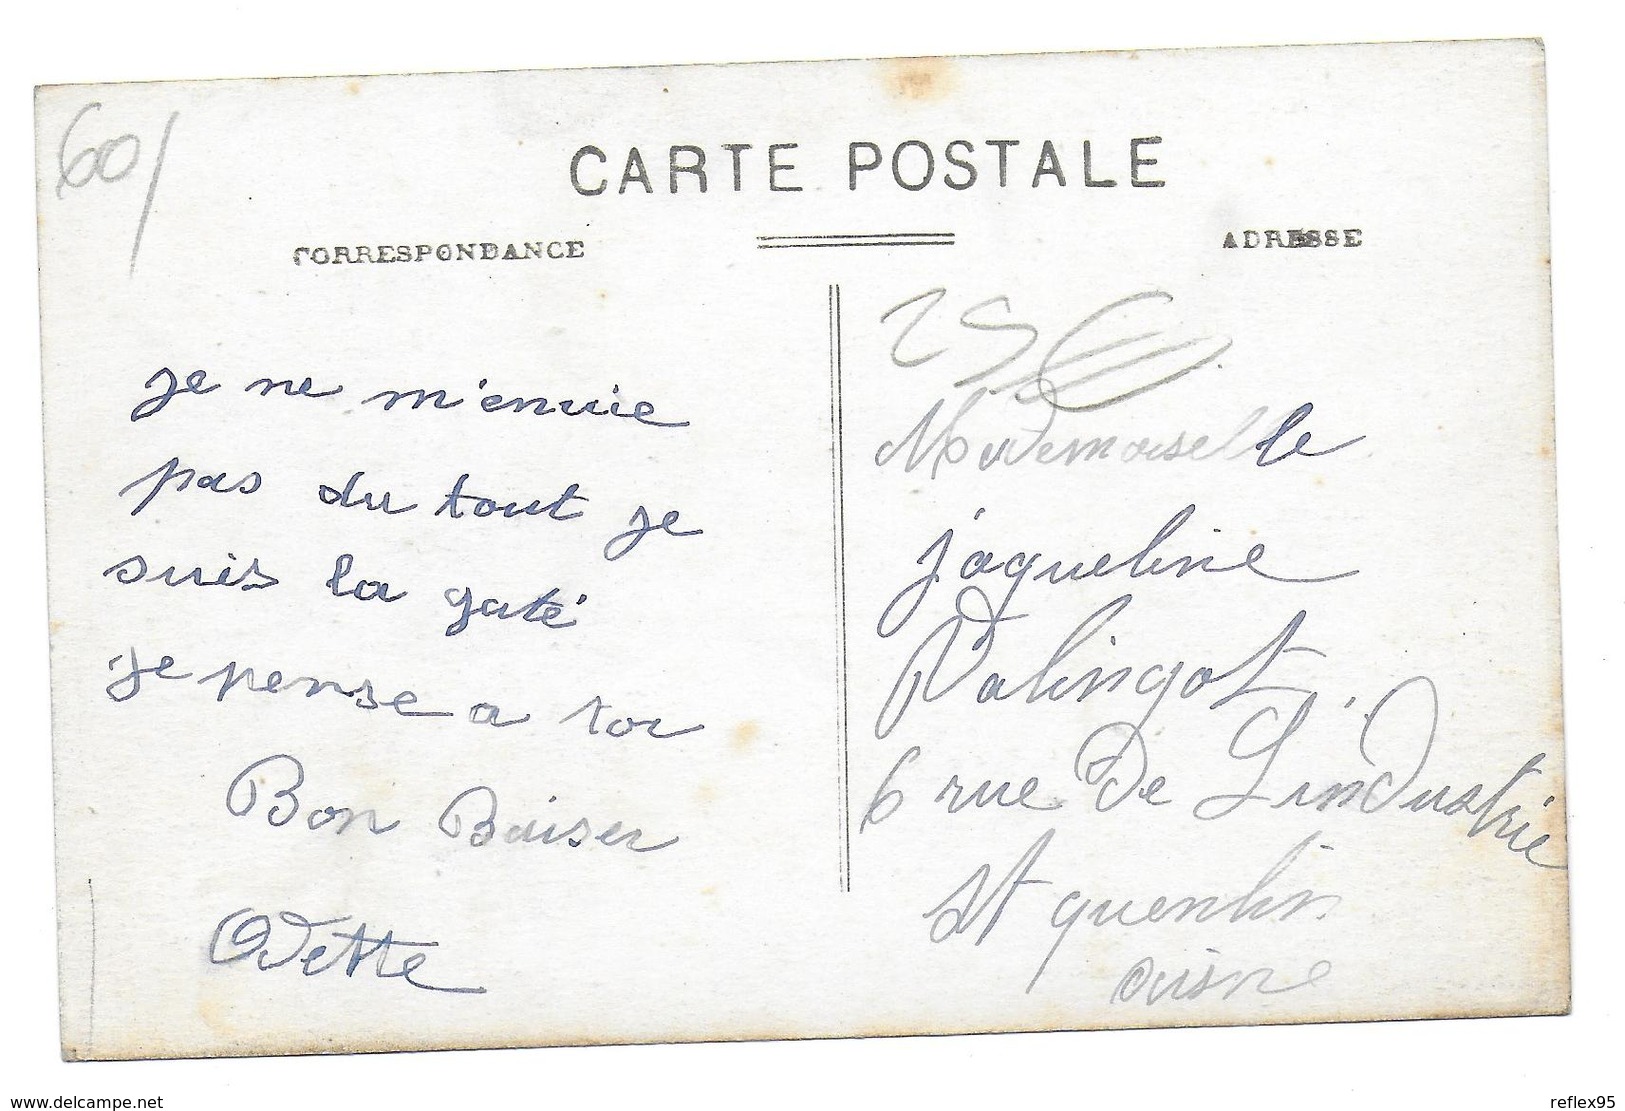 60/
CARTE POSTALE
CORRESPONDANCE
ADRESSE
je ne m'ennuie
pas du tout je
suis la gaté
je pense a toi
Bon Baiser
Odette
25
Mademoiselle
jaqueline
Valingot
6 rue De L'inDustrie
st quentin
aisne
www.delcampe.net
reflex95